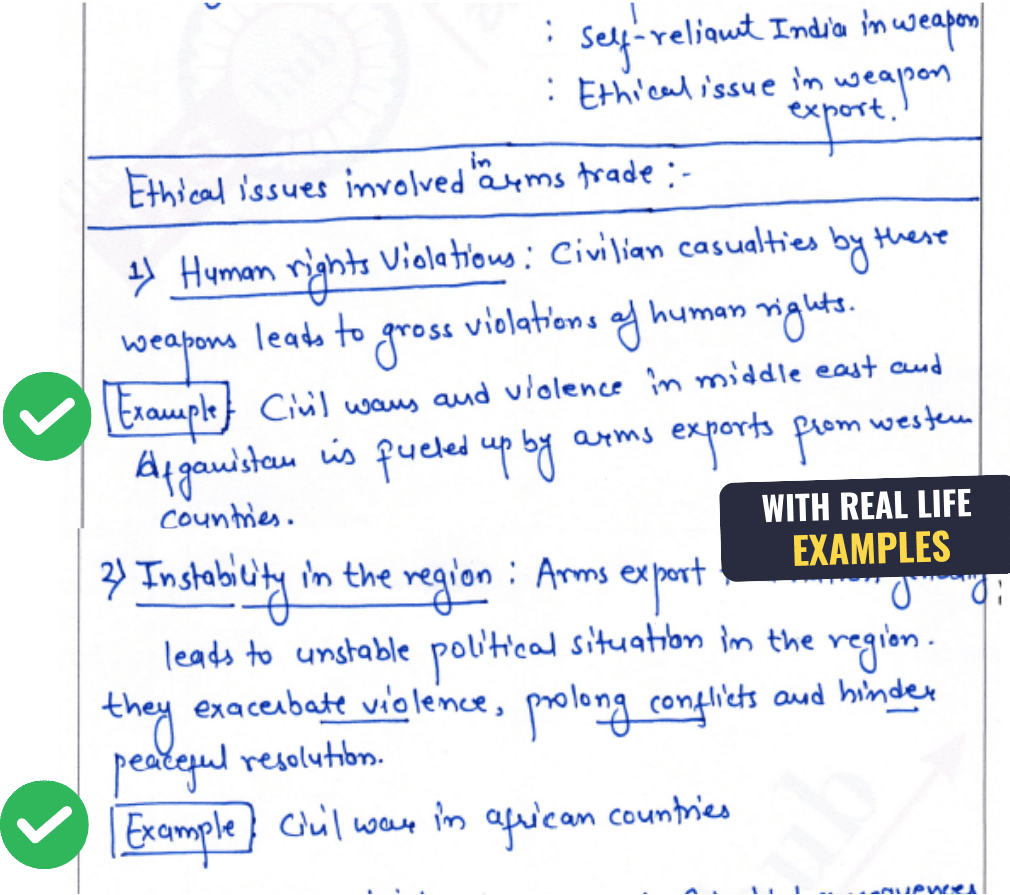 : Self-reliant India in weapon
: Ethical issue in weapon
export.
Ethical issues involved in arms trade :-
1) Human rights Violations : Civilian casualties by these
weapons leads to gross violations of human rights.
Example Civil wars and violence in middle east and
Afganistan is fueled up by arms exports from western
countries.
WITH REAL LIFE
EXAMPLES
2) Instability in the region : Arms export
leads to unstable political situation in the region.
they exacerbate violence, prolong conflicts and hinder
peaceful resolution.
Example Civil wars in african countries